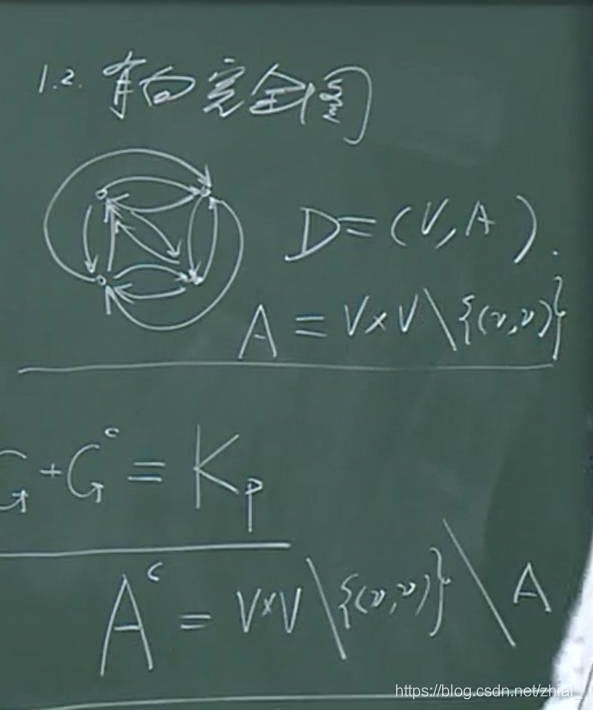 1.2. 有向完全图
D=(V,A).
A=V×V\{(v,v)}
G+Gᶜ=Kₚ
Aᶜ=V×V\{(v,v)}\A
https://blog.csdn.net/zhiai_